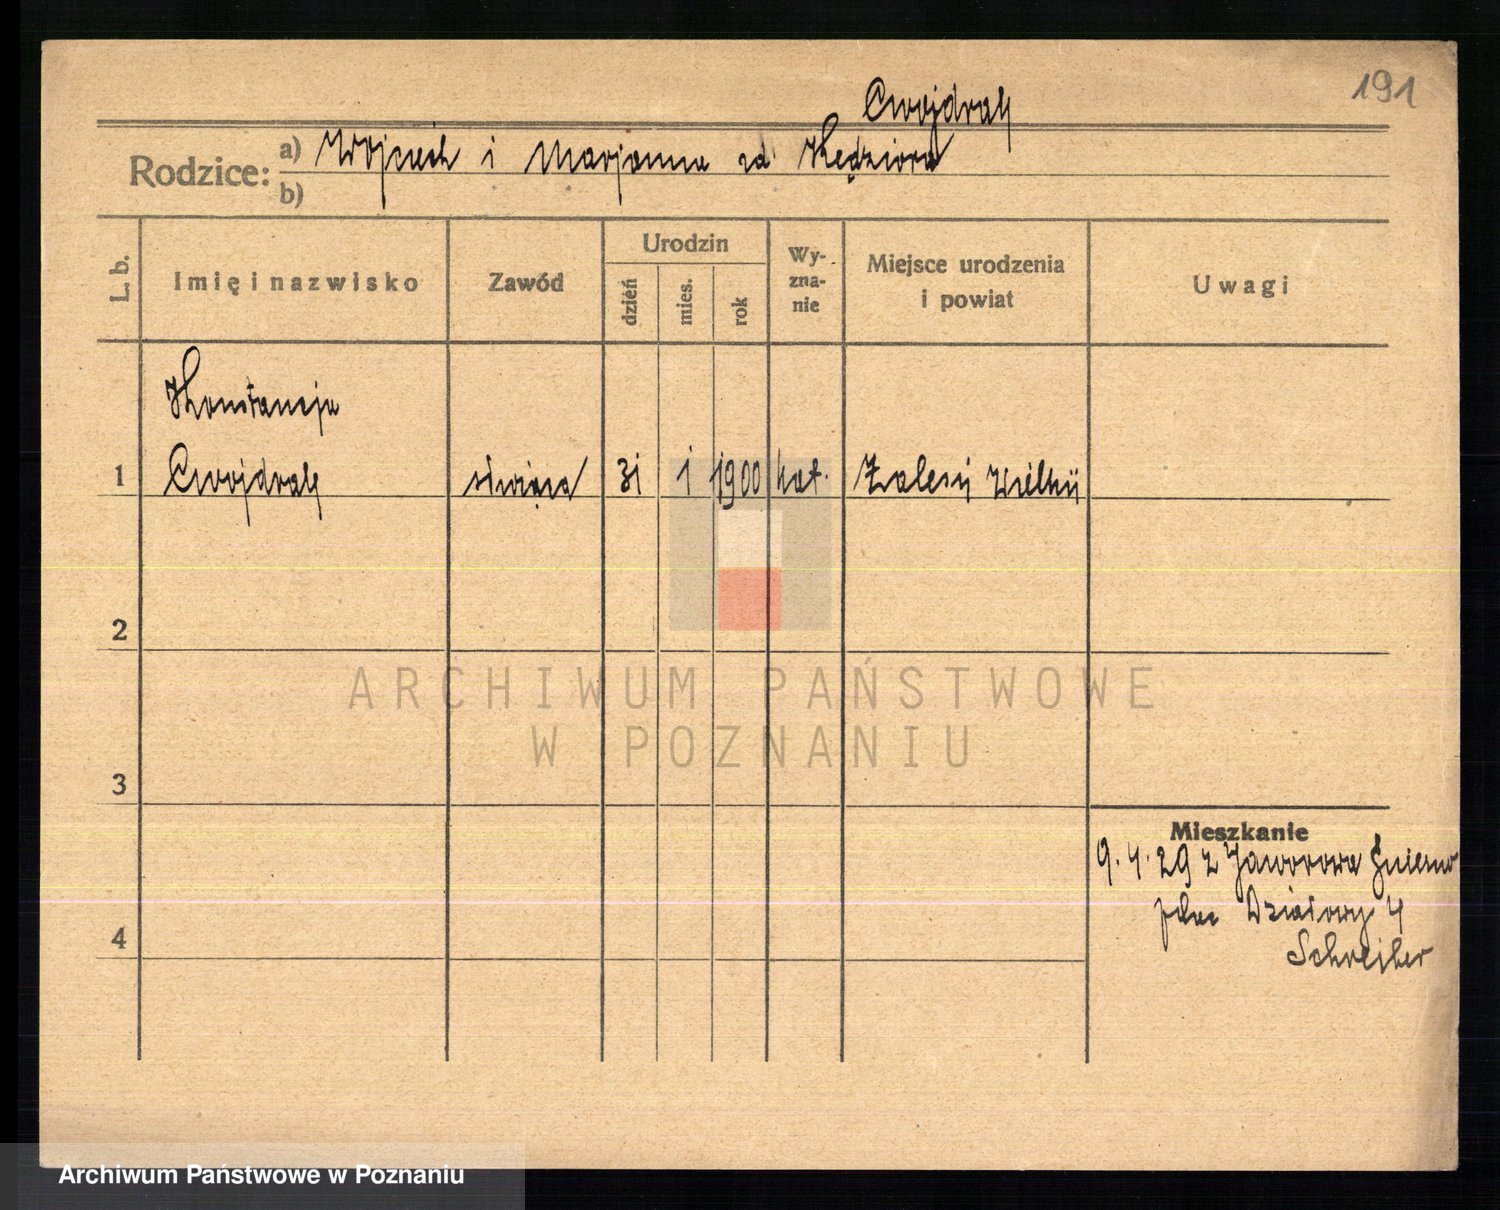 191
Cwojdrak
Rodzice: a) Wojciech i Marjanna zd Kędziora
b)
L. b.
Imię i nazwisko
Zawód
Urodzin
dzień
mies.
rok
Wy-
zna-
nie
Miejsce urodzenia
i powiat
Uwagi
Konstancja
1 Cwojdrak służąca 31 1 1900 kat. Zalesi Wielkii
2
ARCHIWUM PAŃSTWOWE
W POZNANIU
3
Mieszkanie
9.4.29 z Jaworowa Gniezno
plac Działowy 4
4
Schreiber
Archiwum Państwowe w Poznaniu